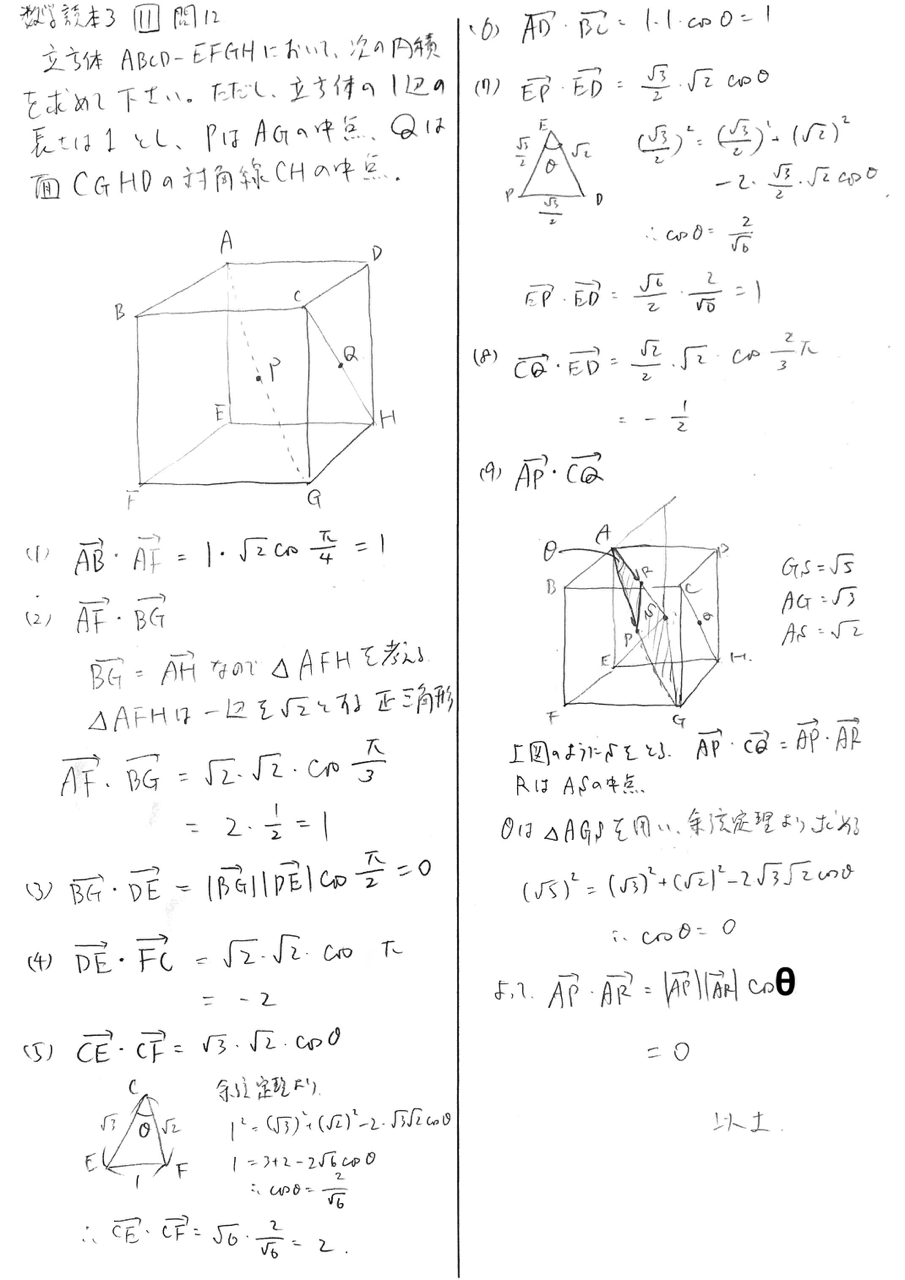 数学読本3 11 問12
立方体 ABCD-EFGHにおいて、次の内積
を求めて下さい。ただし、立方体の1辺の
長さは1とし、PはAGの中点、Qは
面CGHDの対角線CHの中点.
A
D
B
C
Q
P
E
H
F
G
(1) AB・AF = 1・√2 cos π/4 = 1
(2) AF・BG
BG = AH なので △AFHを考える
△AFHは一辺を√2とする正三角形
AF・BG = √2・√2・cos π/3
= 2・1/2 = 1
(3) BG・DE = |BG||DE| cos π/2 = 0
(4) DE・FC = √2・√2・cos π
= -2
(5) CE・CF = √3・√2・cosθ
C
√3 θ √2
E F
1
余弦定理より
1² = (√3)² + (√2)² - 2・√3√2cosθ
1 = 3+2-2√6cosθ
∴ cosθ = 2/√6
∴ CE・CF = √6・2/√6 = 2.
(6) AD・BC = 1・1・cos0 = 1
(7) EP・ED = √3/2・√2 cosθ
E
√3/2 θ √2
P D
√3/2
(√3/2)² = (√3/2)² + (√2)²
-2・√3/2・√2cosθ
∴ cosθ = 2/√6
EP・ED = √6/2・2/√6 = 1
(8) CQ・ED = √2/2・√2・cos 2/3π
= - 1/2
(9) AP・CQ
θ
A
D
B
R
C
S
Q
P
E
H
F
G
GS = √5
AG = √3
AS = √2
上図のようにSをとる. AP・CQ = AP・AR
RはASの中点.
θは△AGSを用い、余弦定理より求める
(√5)² = (√3)² + (√2)² - 2√3√2cosθ
∴ cosθ = 0
よって. AP・AR = |AP||AR| cosθ
= 0
以上.